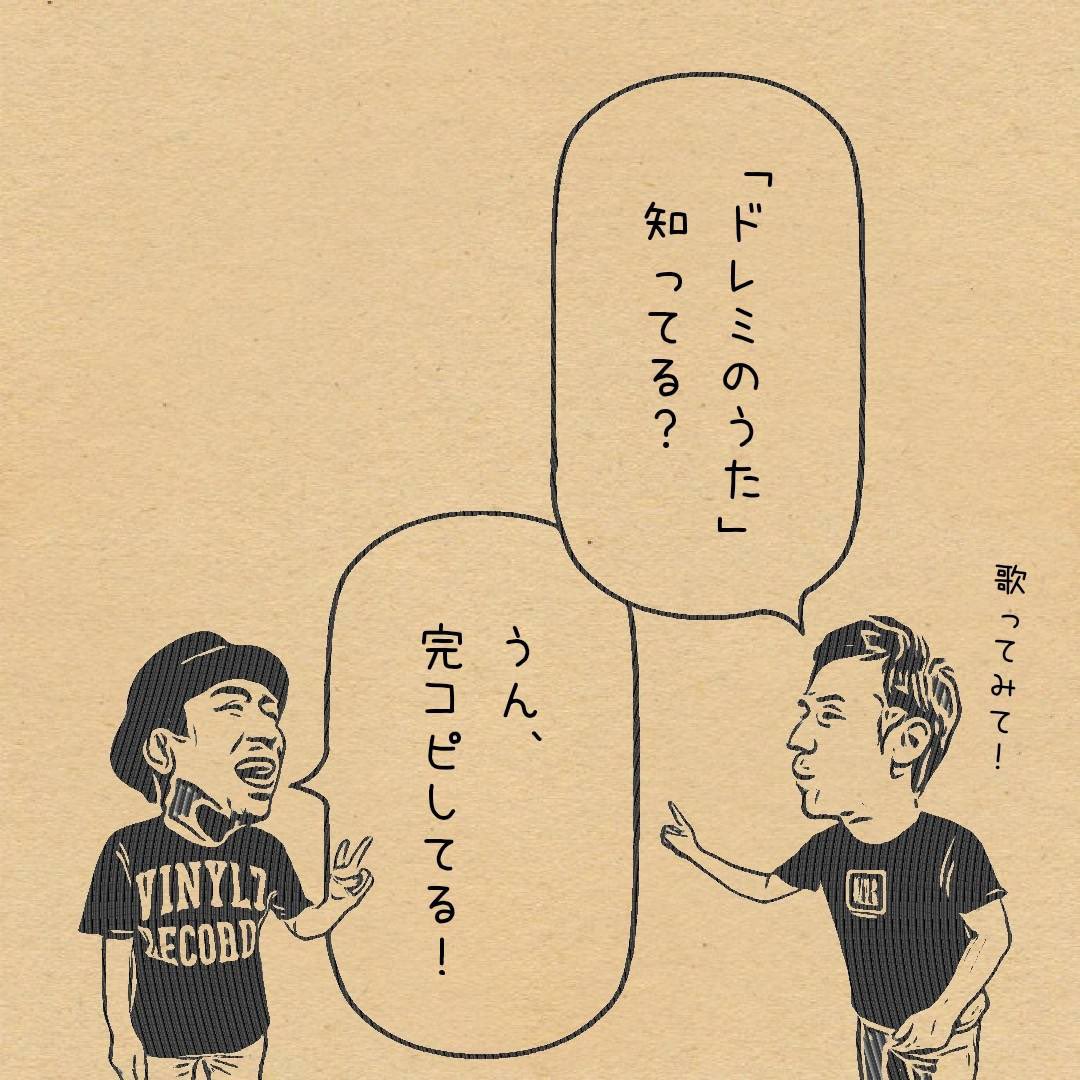 「ドレミのうた」
知ってる?
歌ってみて!
うん、
完コピしてる!
VINYL
RECORD